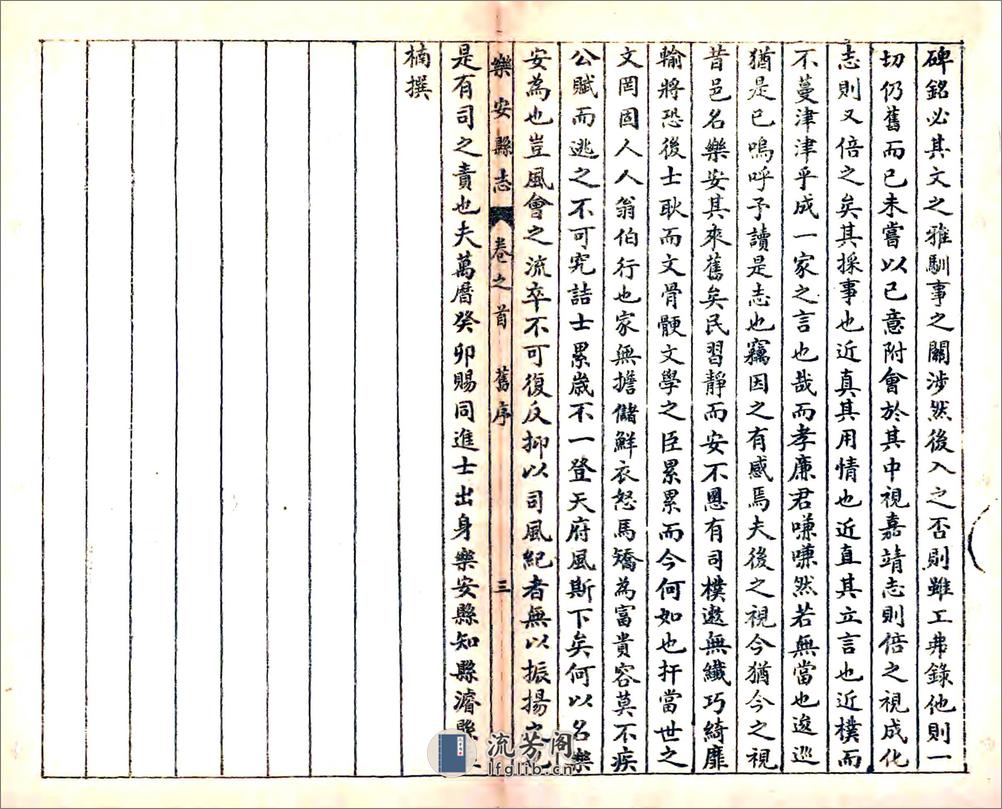 碑銘必其文之雅馴事之關涉然後入之否則雖工弗錄他則一
切仍舊而已未嘗以己意附會於其中視嘉靖志則倍之視成化
志則又倍之矣其採事也近真其用情也近直其立言也近樸而
不蔓津津乎成一家之言也哉而孝廉君嗛嗛然若無當也逡巡
猶是已嗚呼予讀是志也竊因之有感焉夫後之視今猶今之視
昔邑名樂安其來舊矣民習靜而安不慁有司樸遫無纖巧綺靡
輸將恐後士耿而文骨骾文學之臣累累而今何如也扞當世之
文罔固人人翁伯行也家無擔儲鮮衣怒馬矯為富貴容莫不疾
公賦而逃之不可究詰士累歲不一登天府風斯下矣何以名樂
安為也豈風會之流卒不可復反抑以司風紀者無以振揚
樂安縣志 卷之首 舊序 三
是有司之責也夫萬曆癸卯賜同進士出身樂安縣知縣濬縣
楠撰
流芳阁
lfglib.cn